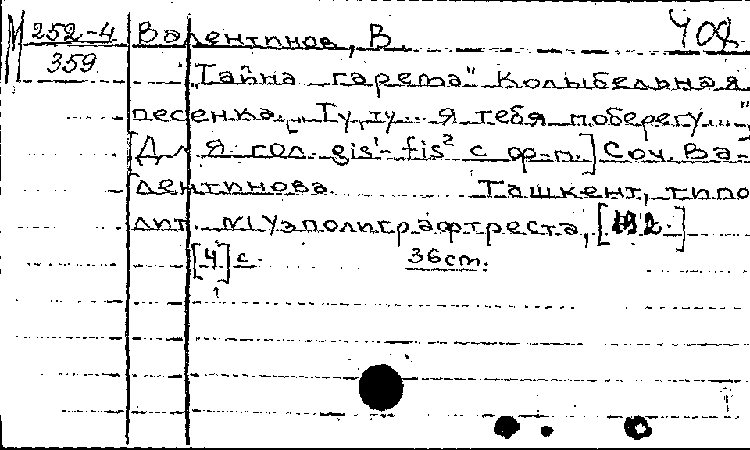 М 252-4 Валентинов, В. 408
359 "Тайна гарема" Колыбельная
песенка. "Ту, ту... я тебя поберегу..."
[Для гол. gis¹-fis² с фр-п.] Соч. Ва-
лентинова Ташкент, типо
лит. №1 Узполиграфтреста, [192.]
[4] с. 36cm.